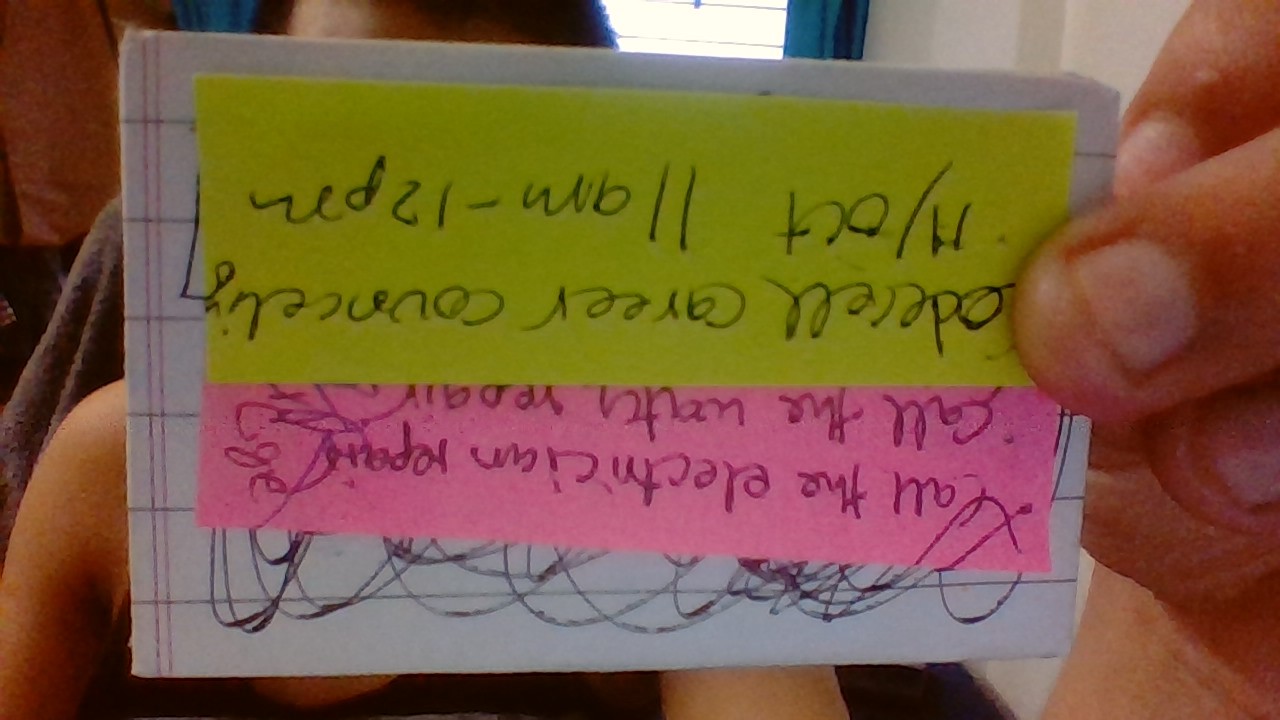 Call the electrician repair
Call the repair
career councelig
11/oct 11am-12pm